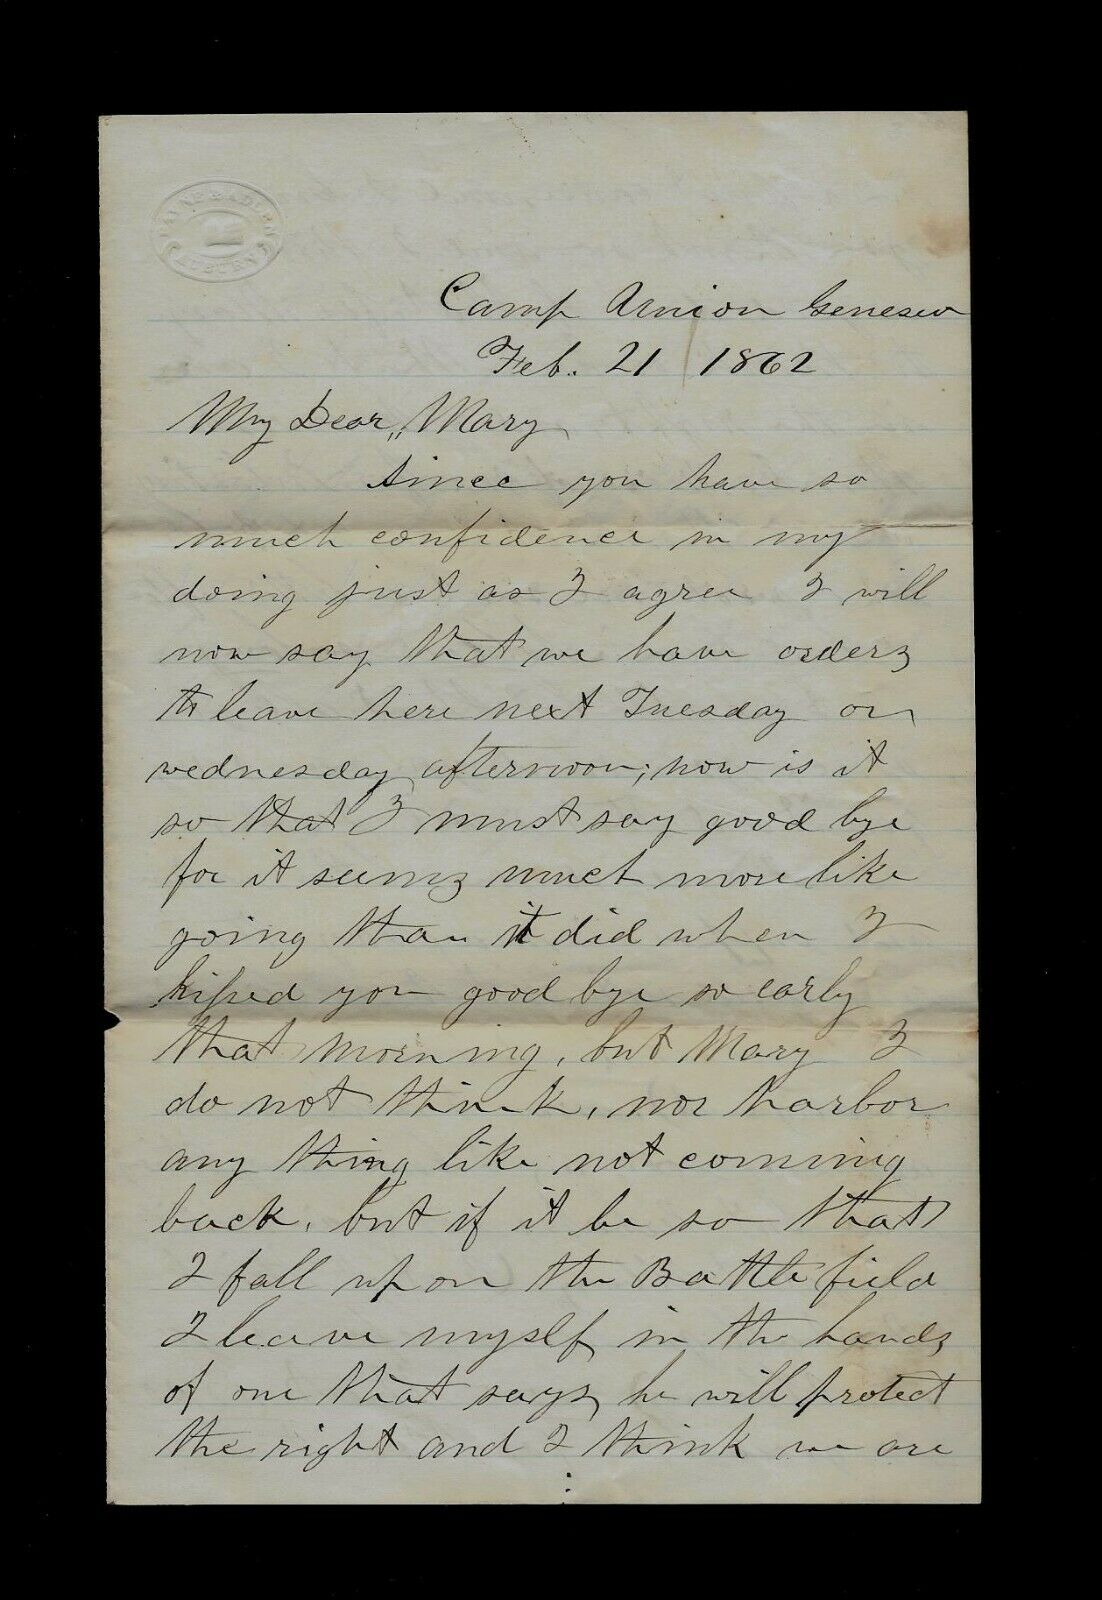 Camp Union Geneseo
Feb. 21 1862
My Dear,, Mary
since you have so
much confidence in my
doing just as I agree I will
now say that we have orders
to leave here next Tuesday or
wednesday afternoon; now is it
so that I must say good bye
for it seems much more like
going than it did when I
kissed you good bye so early
that morning, but Mary I
do not think, nor harbor
any thing like not coming
back, but if it be so that
I fall up on the Battle field
I leave myself in the hands
of one that says he will protect
the right and I think we are